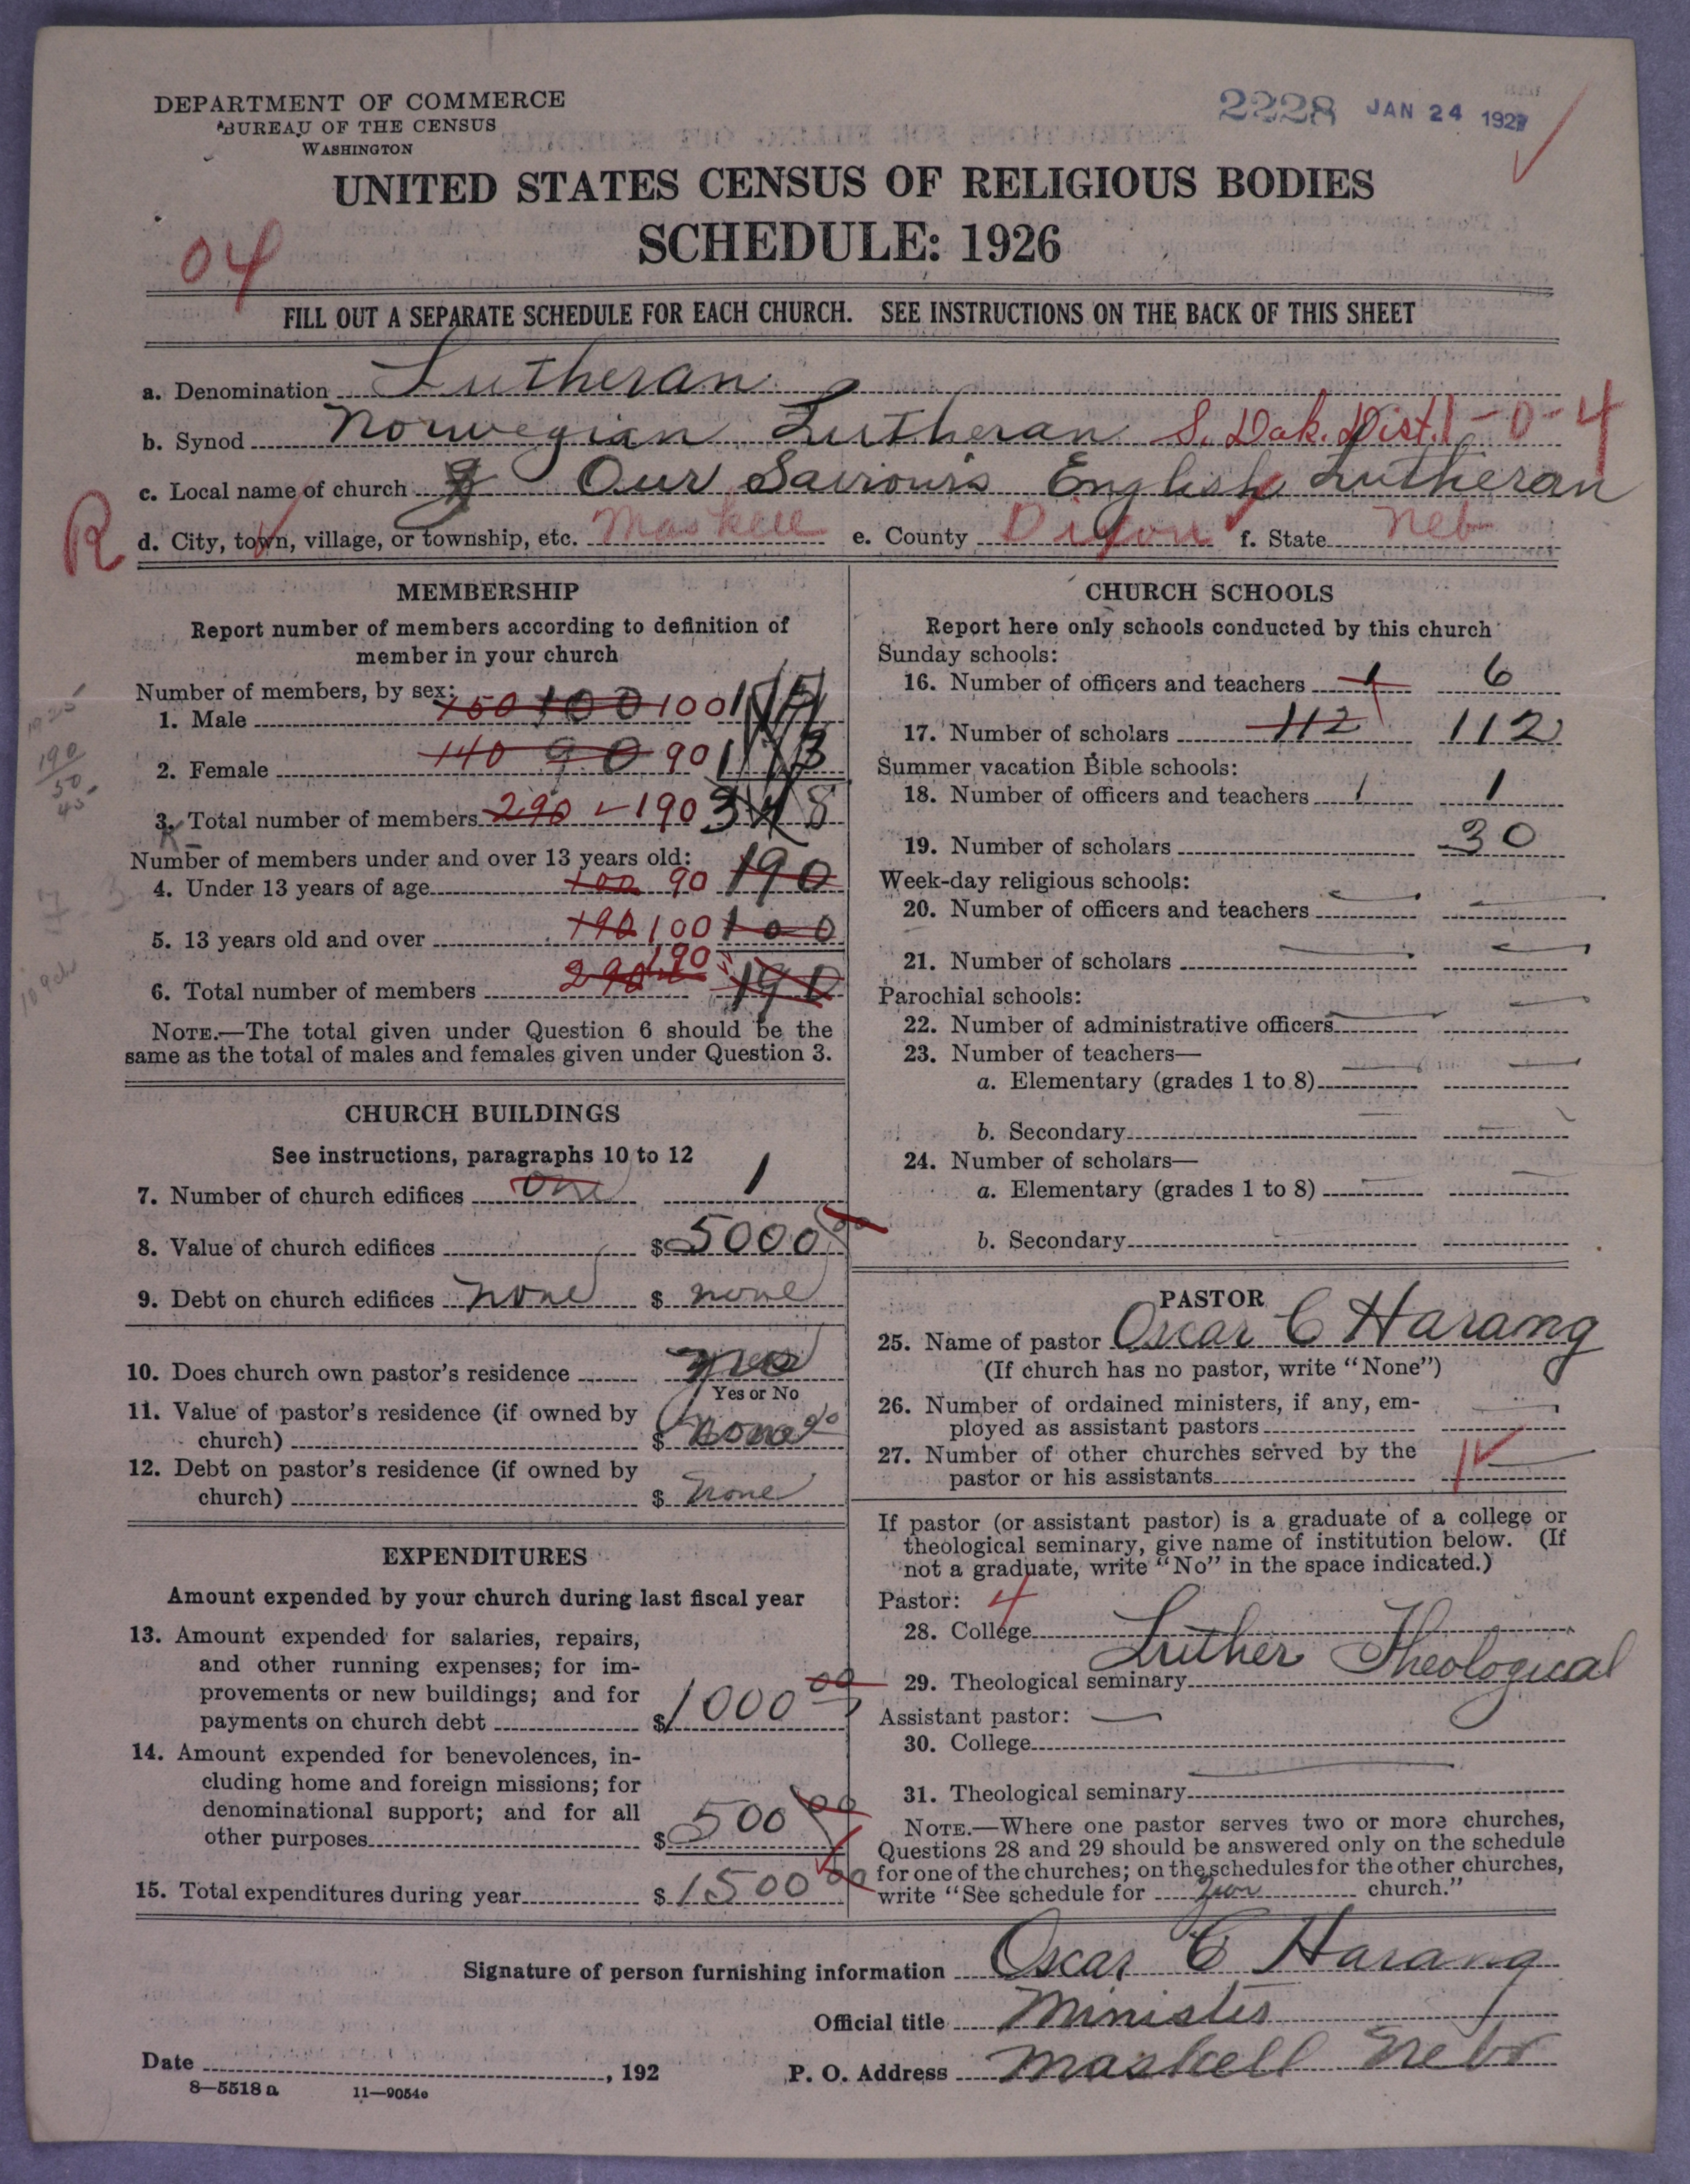 DEPARTMENT OF COMMERCE
BUREAU OF THE CENSUS
WASHINGTON
2228 JAN 24 1927
UNITED STATES CENSUS OF RELIGIOUS BODIES
SCHEDULE: 1926
04
FILL OUT A SEPARATE SCHEDULE FOR EACH CHURCH. SEE INSTRUCTIONS ON THE BACK OF THIS SHEET
a. Denomination Lutheran
b. Synod Norwegian Lutheran S. Dak. Dist. 1-0-4
c. Local name of church Our Saviours English Lutheran
R d. City, town, village, or township, etc. Maskell e. County Dixon f. State Neb
MEMBERSHIP
Report number of members according to definition of
member in your church
Number of members, by sex:
1. Male 150 100 100 175
2. Female 140 90 90 173
3. Total number of members 290 190 348
Number of members under and over 13 years old:
4. Under 13 years of age 100 90 190
5. 13 years old and over 190 100 100
6. Total number of members 290 190 190
NOTE.—The total given under Question 6 should be the
same as the total of males and females given under Question 3.
CHURCH BUILDINGS
See instructions, paragraphs 10 to 12
7. Number of church edifices one 1
8. Value of church edifices $ 5000 00
9. Debt on church edifices none $ none
10. Does church own pastor's residence
Yes or No
11. Value of pastor's residence (if owned by
church) $ none
12. Debt on pastor's residence (if owned by
church) $ none
EXPENDITURES
Amount expended by your church during last fiscal year
13. Amount expended for salaries, repairs,
and other running expenses; for im-
provements or new buildings; and for
payments on church debt $ 1000 00
14. Amount expended for benevolences, in-
cluding home and foreign missions; for
denominational support; and for all
other purposes $ 500 00
15. Total expenditures during year $ 1500 00
CHURCH SCHOOLS
Report here only schools conducted by this church
Sunday schools:
16. Number of officers and teachers 1 6
17. Number of scholars 112 112
Summer vacation Bible schools:
18. Number of officers and teachers 1 1
19. Number of scholars 30
Week-day religious schools:
20. Number of officers and teachers
21. Number of scholars
Parochial schools:
22. Number of administrative officers
23. Number of teachers—
a. Elementary (grades 1 to 8)
b. Secondary
24. Number of scholars—
a. Elementary (grades 1 to 8)
b. Secondary
PASTOR
25. Name of pastor Oscar C Harang
(If church has no pastor, write "None")
26. Number of ordained ministers, if any, em-
ployed as assistant pastors
27. Number of other churches served by the
pastor or his assistants 1
If pastor (or assistant pastor) is a graduate of a college or
theological seminary, give name of institution below. (If
not a graduate, write "No" in the space indicated.)
Pastor: 4
28. College
29. Theological seminary Luther Theological
Assistant pastor: —
30. College
31. Theological seminary
NOTE.—Where one pastor serves two or more churches,
Questions 28 and 29 should be answered only on the schedule
for one of the churches; on the schedules for the other churches,
write "See schedule for church."
Signature of person furnishing information Oscar C Harang
Official title Minister
Date , 192 P. O. Address Maskell Nebr
8—5518 a 11—9054